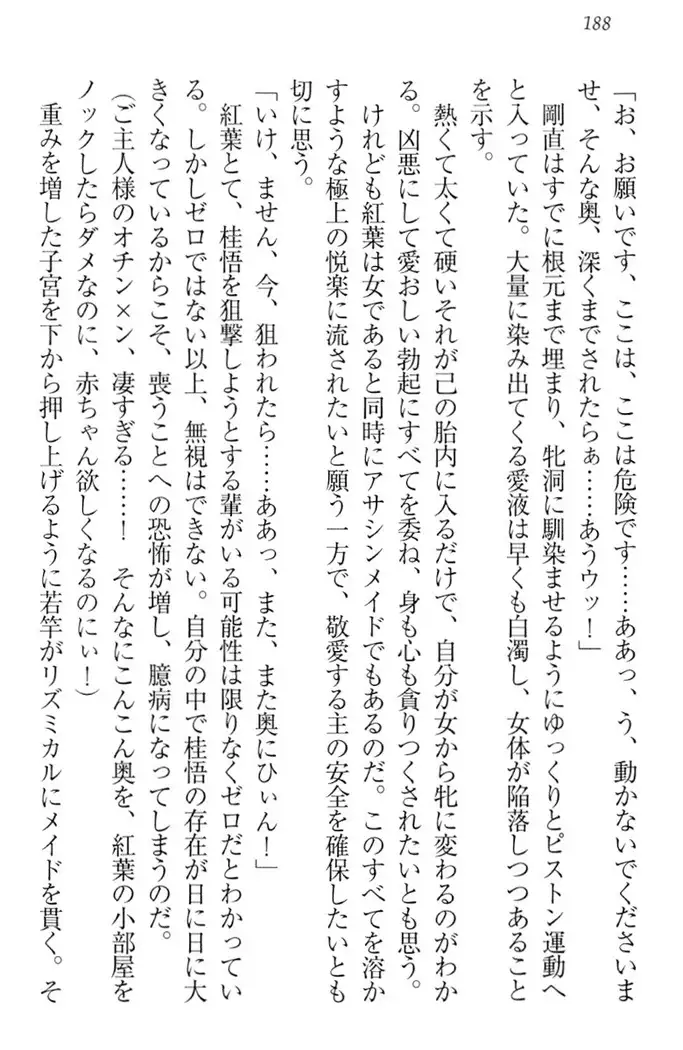 188
「お、お願いです、ここは、ここは危険です……ああっ、う、動かないでくださいま
せ、そんな奥、深くまでされたらぁ……あうウッ！」
剛直はすでに根元まで埋まり、牝洞に馴染ませるようにゆっくりとピストン運動へ
と入っていた。大量に染み出てくる愛液は早くも白濁し、女体が陥落しつつあること
を示す。
熱くて太くて硬いそれが己の胎内に入るだけで、自分が女から牝に変わるのがわか
る。凶悪にして愛おしい勃起にすべてを委ね、身も心も貪りつくされたいとも思う。
けれども紅葉は女であると同時にアサシンメイドでもあるのだ。このすべてを溶か
すような極上の悦楽に流されたいと願う一方で、敬愛する主の安全を確保したいとも
切に思う。
「いけ、ません、今、狙われたら……ああっ、また、また奥にひぃん！」
紅葉とて、桂悟を狙撃しようとする輩がいる可能性は限りなくゼロだとわかってい
る。しかしゼロではない以上、無視はできない。自分の中で桂悟の存在が日に日に大
きくなっているからこそ、喪うことへの恐怖が増し、臆病になってしまうのだ。
（ご主人様のオチン×ン、凄すぎる……！　そんなにこんこん奥を、紅葉の小部屋を
ノックしたらダメなのに、赤ちゃん欲しくなるのにぃ！）
重みを増した子宮を下から押し上げるように若竿がリズミカルにメイドを貫く。そ